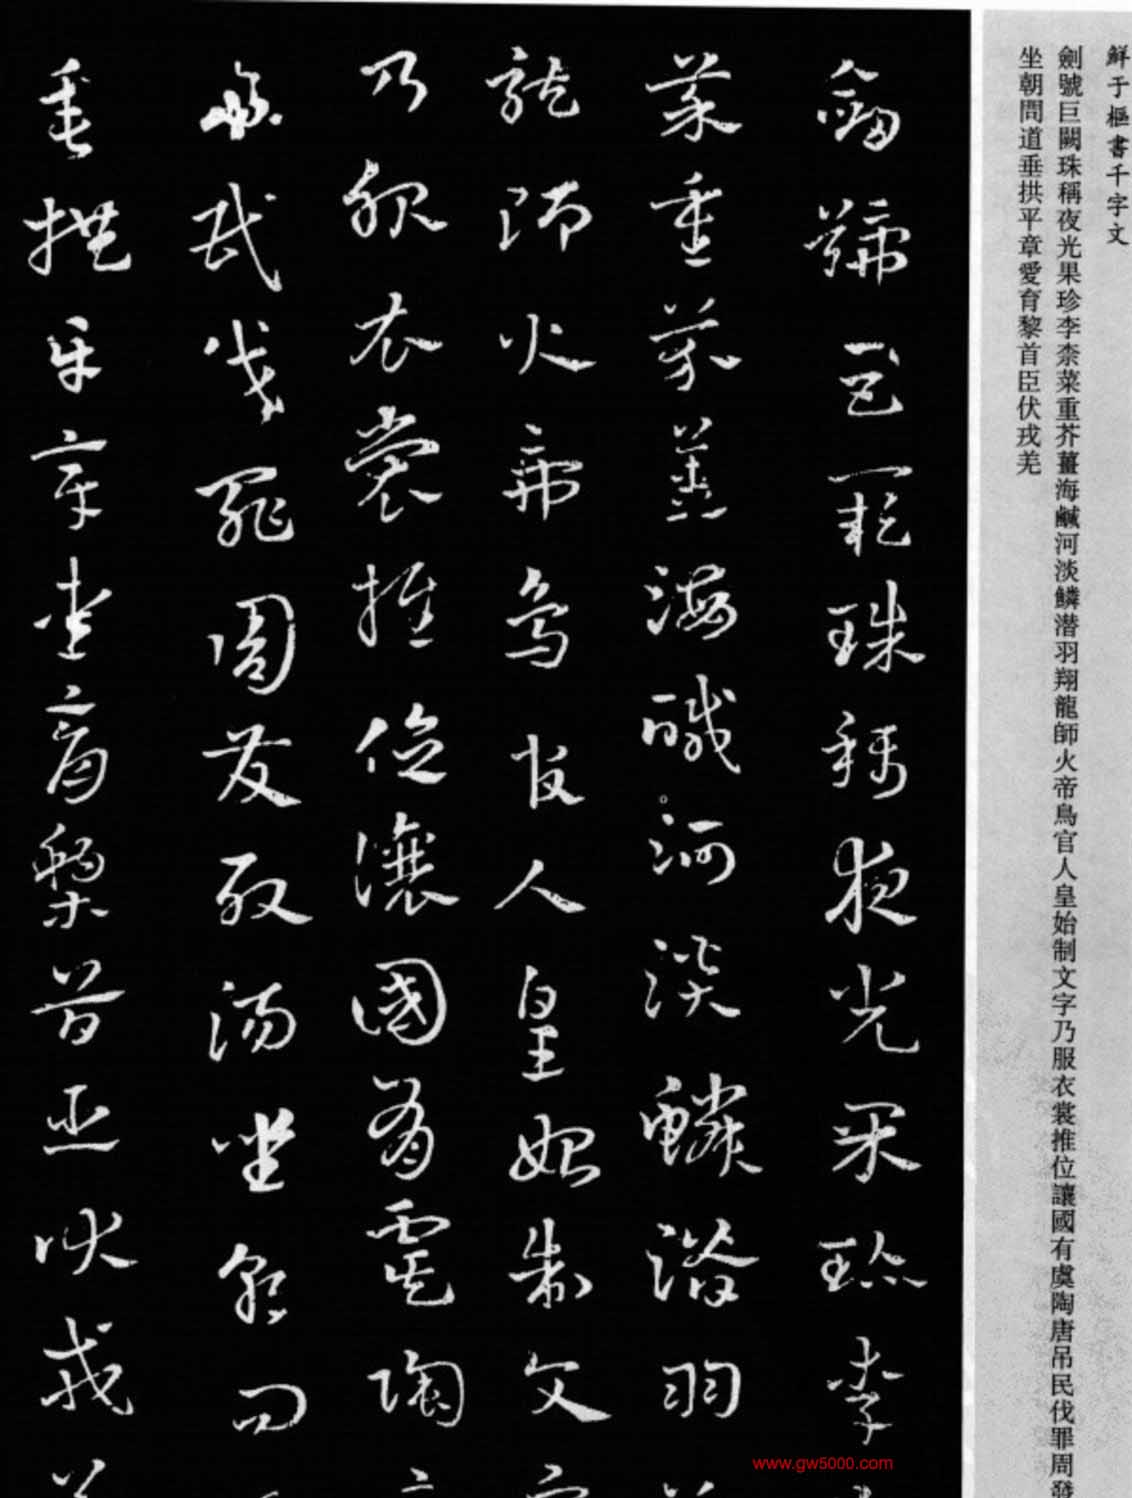 鮮于樞書千字文
劍號巨闕珠稱夜光果珍李柰菜重芥薑海鹹河淡鱗潜羽翔龍師火帝鳥官人皇始制文字乃服衣裳推位讓國有虞陶唐吊民伐罪周發
坐朝問道垂拱平章愛育黎首臣伏戎羌
劍號巨闕珠稱夜光果珍李
菜重芥薑海鹹河淡鱗潛羽
龍師火帝鳥官人皇始制文
乃服衣裳推位讓國有虞陶
吊民伐罪周發殷湯坐朝問
垂拱平章愛育黎首臣伏戎
www.gw5000.com